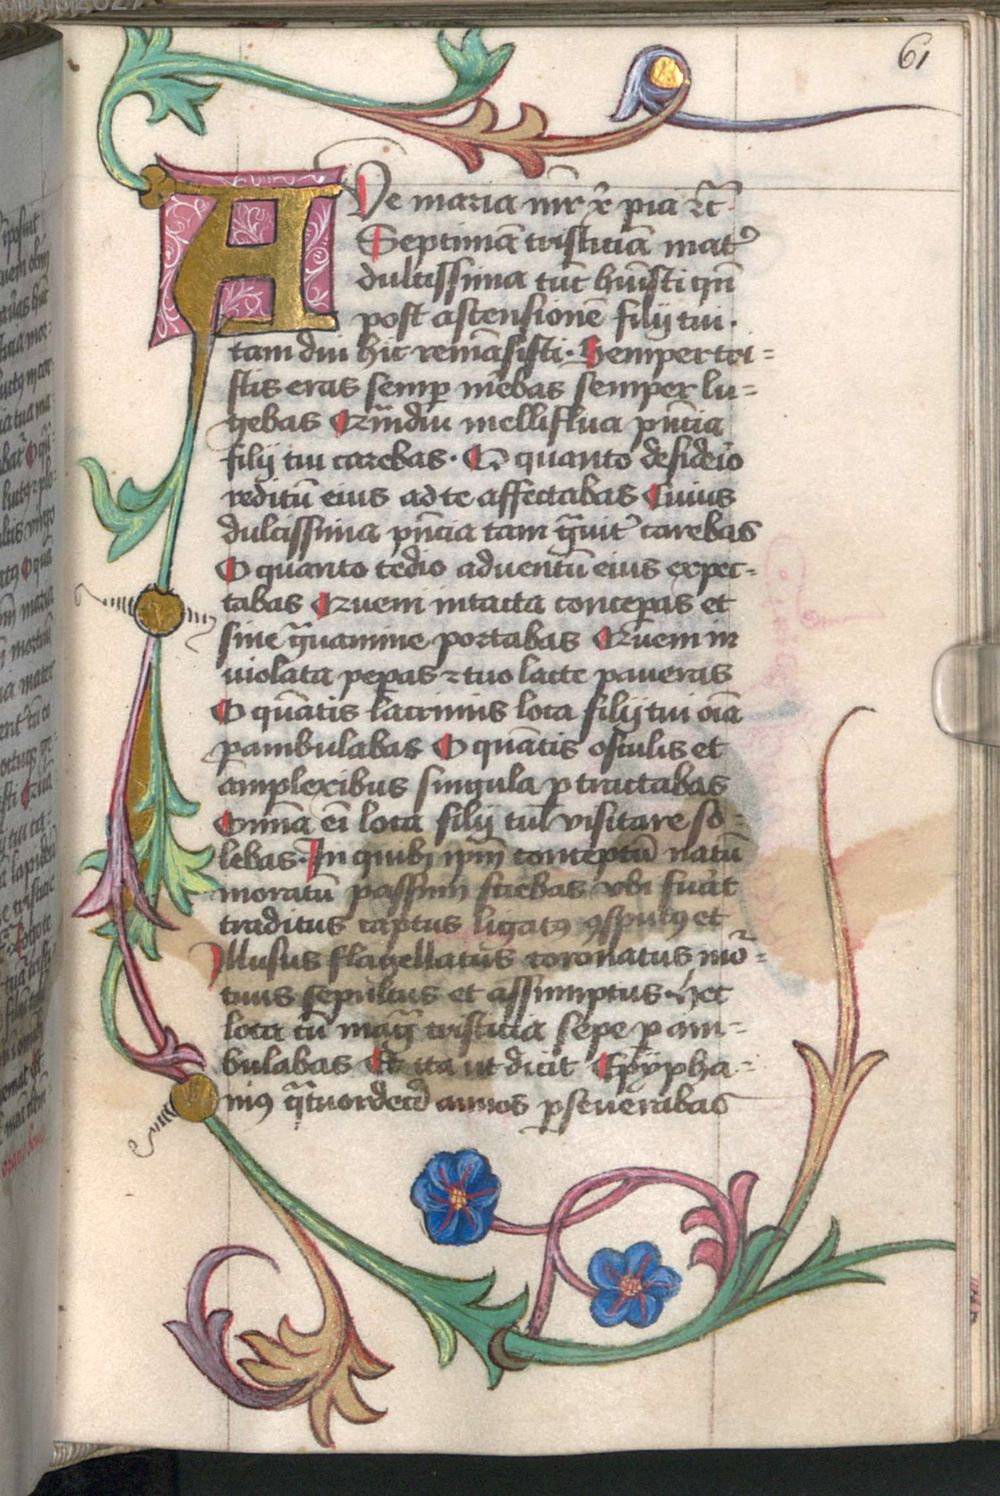 61
Ave maria mr̄ xp̄i pia ⁊c̄
Septimā tristiciā mater
dulcissima tūc h̄uisti qn̄
post ascensionē filij tui·
tam diu hic remāsisti· Semper tri=
stis eras semp̄ merebas semper lu=
gebas Qr̄ tādiu melliflua p̄ncia
filij tui carebas· O quanto desideīo
reditū eius ad te affectabas Cuius
dulcissima p̄ncia tam g̃uit̾ carebas
O quanto tedio adventū eius expec=
tabas Quem intacta conceperas et
sine g̃uamine portabas Quem in
uiolata peperas ⁊ tuo lacte paueras
O quātis lacrimis loca filij tui oīa
ꝑambulabas O quātis osculis et
amplexibus singula ꝑtractabas
Omnia ei loca filij tui visitare so=
lebas· In quibꝫ ip̄m conceptū natū
moratū passum sciebas vbi fuit
traditus captus ligatꝰ ꝯsputꝰ et
Illusus flagellatus coronatus mō=
tuus sepultus et assumptus· Hec
loca cū mag̃ tristicia sepe ꝑam=
bulabas Et ita ut dicit Epypha=
niꝰ q̃tuordecī annos ꝑseuerabas